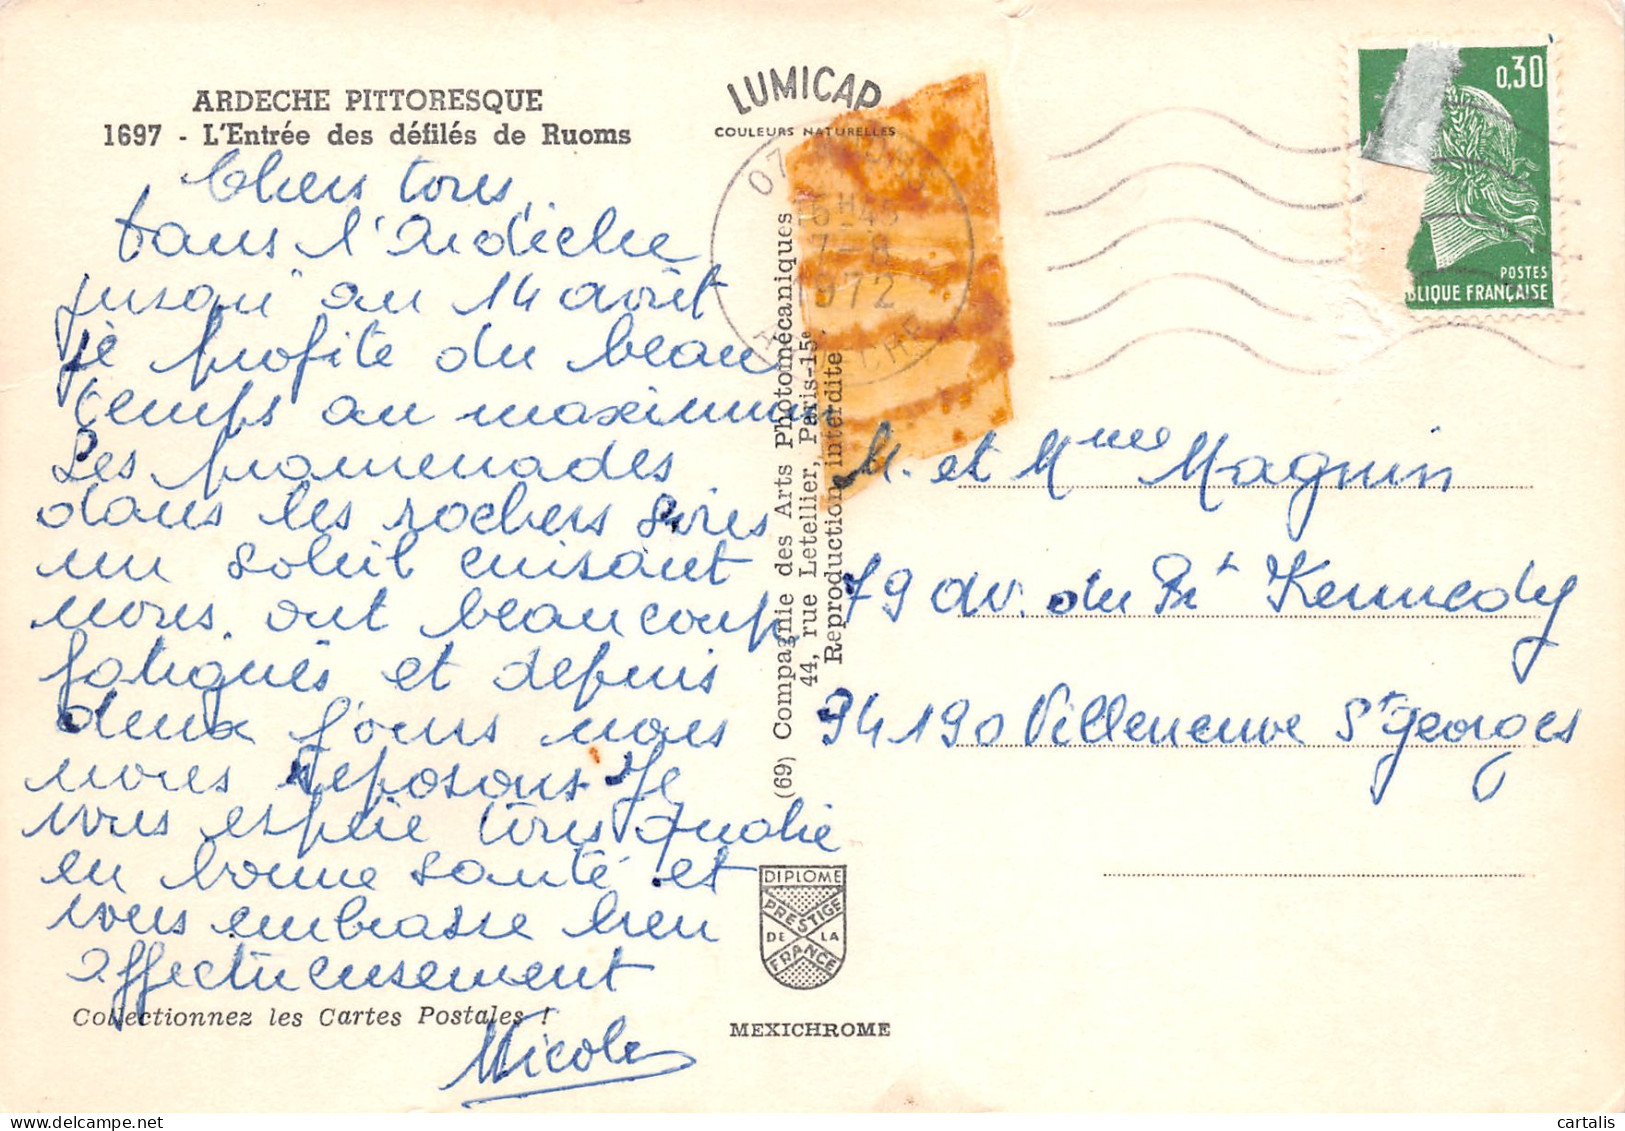 ARDECHE PITTORESQUE
1697 - L'Entrée des défilés de Ruoms
Chers tous,
Dans l'Ardèche
jusqu'au 14 août
je profite du beau
temps au maximum
Les promenades
dans les rochers sous
un soleil cuisant
nous ont beaucoup
fatigués et depuis
deux jours nous
nous reposons. Je
vous espère tous quatre
en bonne santé et
vous embrasse bien
affectueusement
Nicole
Collectionnez les Cartes Postales !
LUMICAP
COULEURS NATURELLES
07
16H45
7-8
1972
ARDECHE
(69) Compagnie des Arts Photomécaniques
44, rue Letellier, Paris-15e.
Reproduction interdite
DIPLOME
PRESTIGE
DE LA
FRANCE
MEXICHROME
0,30
POSTES
BLIQUE FRANÇAISE
M. et Mme Magnin
79 av. du Pt Kennedy
94190 Villeneuve St Georges
cartalis